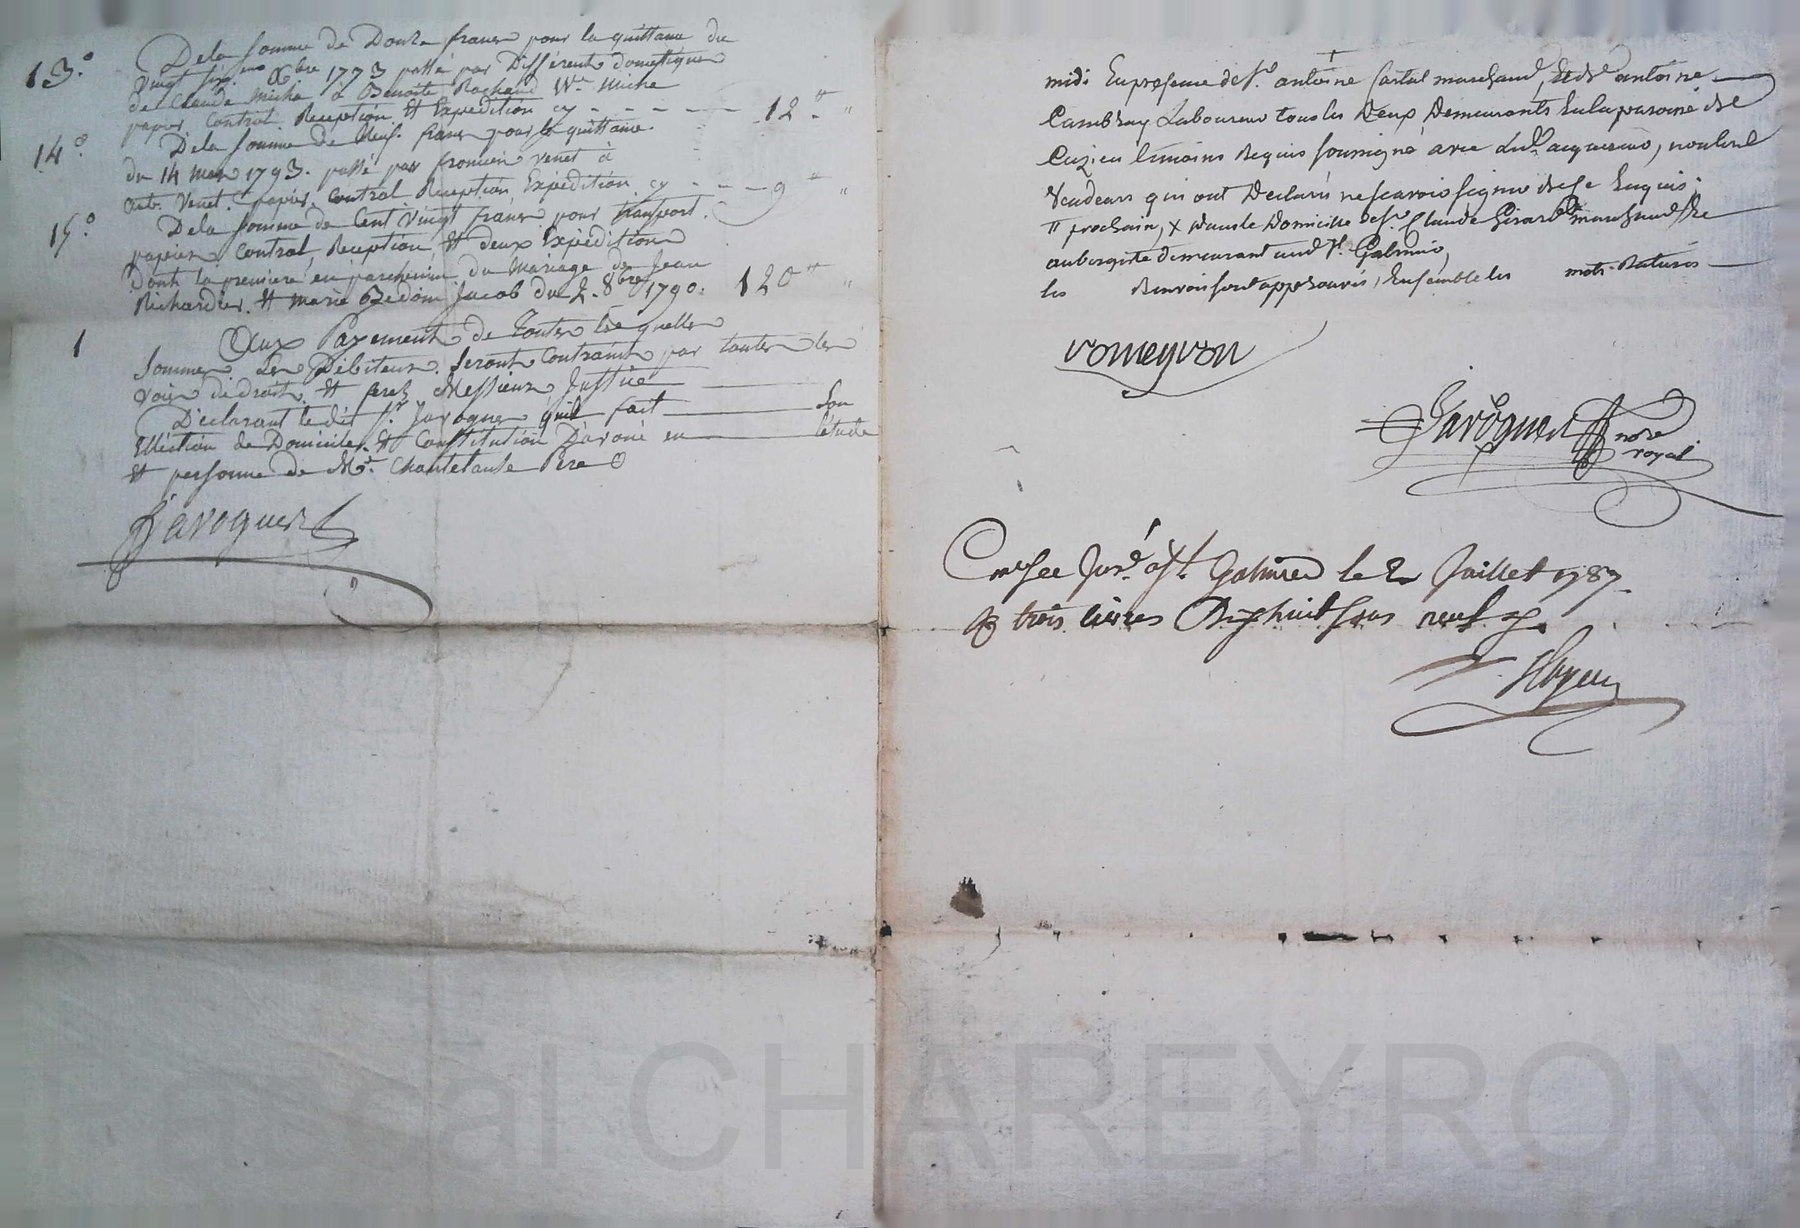 13.° De la somme de Douze francs pour la quittance du
vingt six Xbre 1773 passé par Différents domestiques
de Claude Miche à Benoite Rochand Ve Miche
papier Control Reception Et Expédition cy - - - - - 12 ₶ "
14.° De la somme de Neuf francs pour la quittance
du 14 Mars 1793. passé par venet à
ant. Venet. papier, control. Reception, Expédition, cy - - - 9 ₶ "
15.° De la somme de Cent vingt francs pour transport.
papiers Control, Reception Et deux Expéditions
Dont la premiere en parchemin du Mariage de Jean
Richardier Et marie Jacob du 2. 8bre 1790. 120 ₶ "
1 Aux Payement de Toutes les quelles
Sommes Les Débiteurs Seront Contraints par toutes les
voies de droit Et Messieurs Justice
Déclarant le dit Sr. Javogues quil fait Son
Ellection de Domicile, Et Constitution D'avoué en l'etude
Et personne de Mr. Chantelause Pere
Javogues
midi En presence de Sr. antoine marchand, Et de antoine
Cambray Laboureur tous les Deux Demeurants En la paroisse de
Cuzieu témoins Requis soussigné avec acquereur, non les
Vendeurs qui ont Déclarés ne scavoir signer de ce Enquis.
₶ prochain, X dans le Domicile de Sr. Claude Girard marchand
aubergiste demeurant aud. St. Galmier,
les Renvois sont approuvés, Ensemble les mots Raturés
vomeyron
Javogues nore
royal
St. Galmier le 2 Juillet 1787.
trois livres Dix huit sous neuf